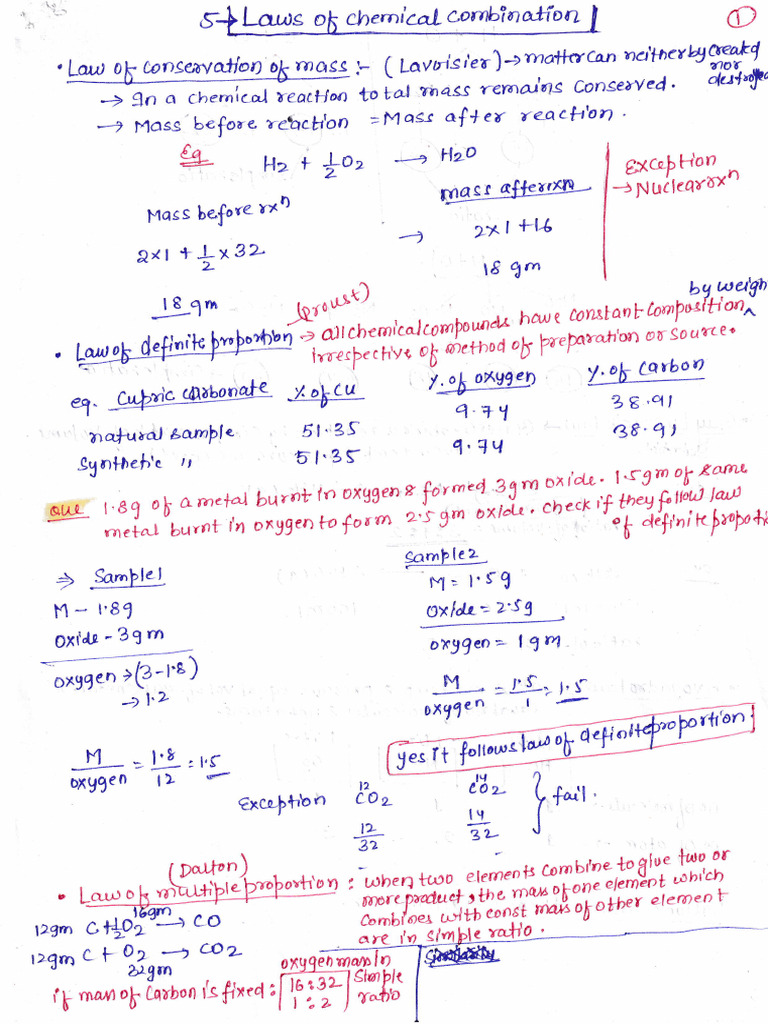 5→ Laws of chemical combination
①
• Law of conservation of mass :- (Lavoisier) → matter can neither by created nor destroyed
→ In a chemical reaction total mass remains conserved.
→ Mass before reaction = Mass after reaction.
Eg H2 + 1/2 O2 → H2O
Exception
→ Nuclear rxn
Mass before rxn
mass after rxn
2×1 + 1/2 × 32 → 2×1+16
18 gm
18 gm
(Proust)
• Law of definite proportion → all chemical compounds have constant composition ^ by weigh
irrespective of method of preparation or source.
eg. Cupric carbonate %.of Cu %.of oxygen %.of Carbon
natural sample 51.35 9.74 38.91
Synthetic " 51.35 9.74 38.91
Que 1.8g of a metal burnt in oxygen & formed 3gm oxide. 1.5gm of same
metal burnt in oxygen to form 2.5 gm oxide. check if they follow law
of definite proportio
⇒ Sample1
M - 1.8g
Oxide - 3gm
oxygen → (3-1.8)
→ 1.2
M/oxygen = 1.8/12 = 1.5
Sample2
M = 1.5g
Oxide = 2.5g
oxygen = 1gm
M/oxygen = 1.5/1 = 1.5
yes it follows law of definite proportion.
Exception 12CO2 14CO2 } fail.
12/32 14/32
(Dalton)
• Law of multiple proportion : when two elements combine to give two or
more product, the mass of one element which
combines with const mass of other element
are in simple ratio.
16gm
12gm C + 1/2 O2 → CO
12gm C + O2 → CO2
32gm
oxygen mass in
if mass of Carbon is fixed : 16:32 Simple
1:2 ratio